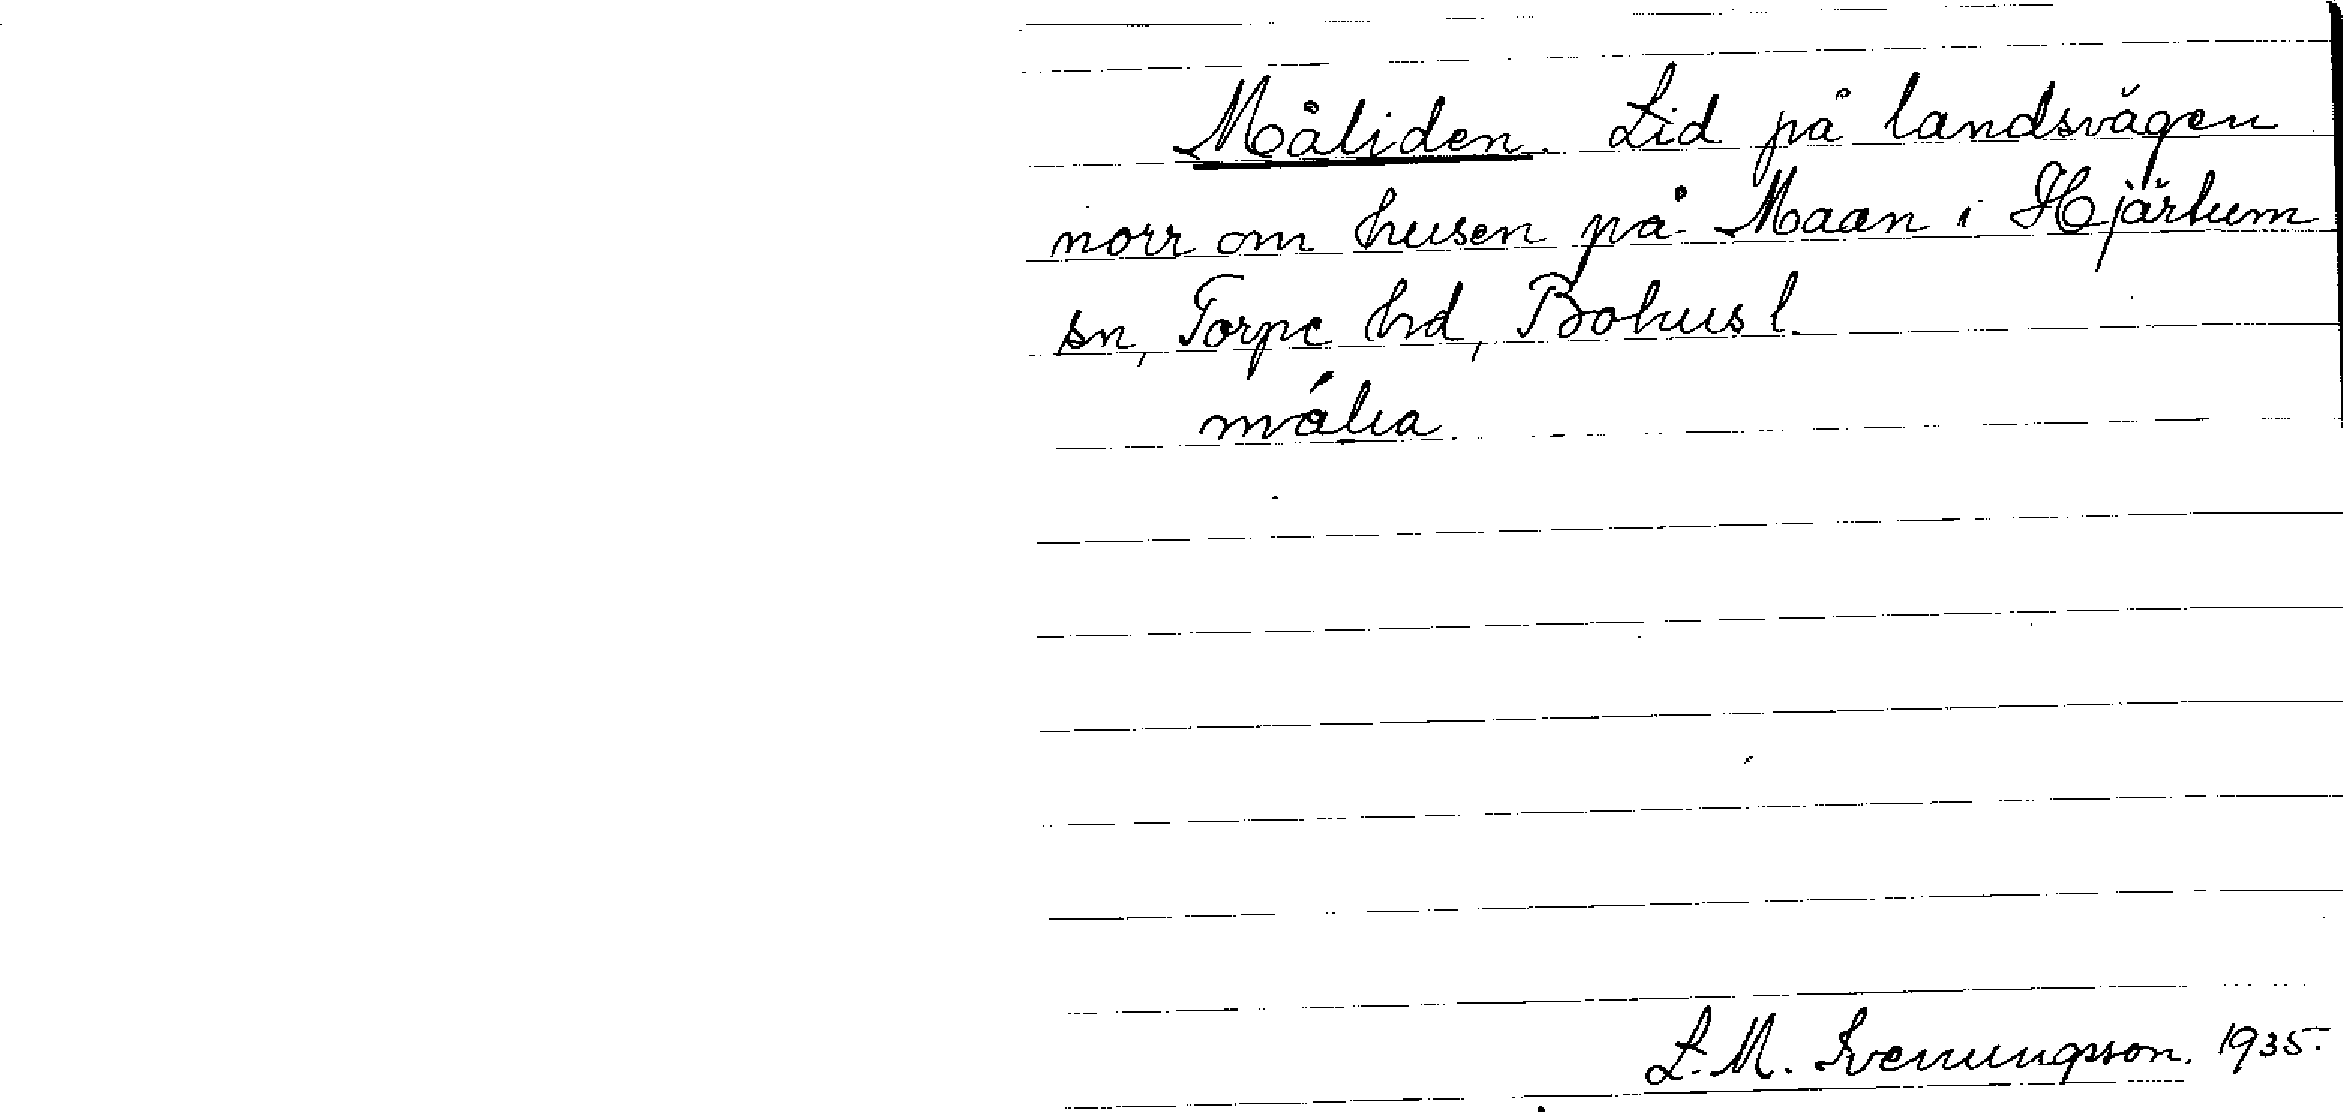 Måliden. Lid på landsvägen
norr om husen på Maan i Hjärtum
sn, Torpe hd, Bohusl.
mália
L. M. Svenungsson. 1935.